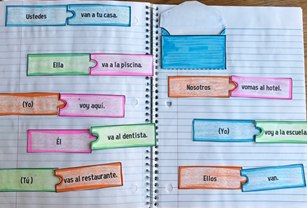 Ustedes van a tu casa.
Ella va a la piscina.
(Yo) voy aquí.
Él va al dentista.
(Tú) vas al restaurante.
Nosotros vomas al hotel.
(Yo) voy a la escuela
Ellos van.